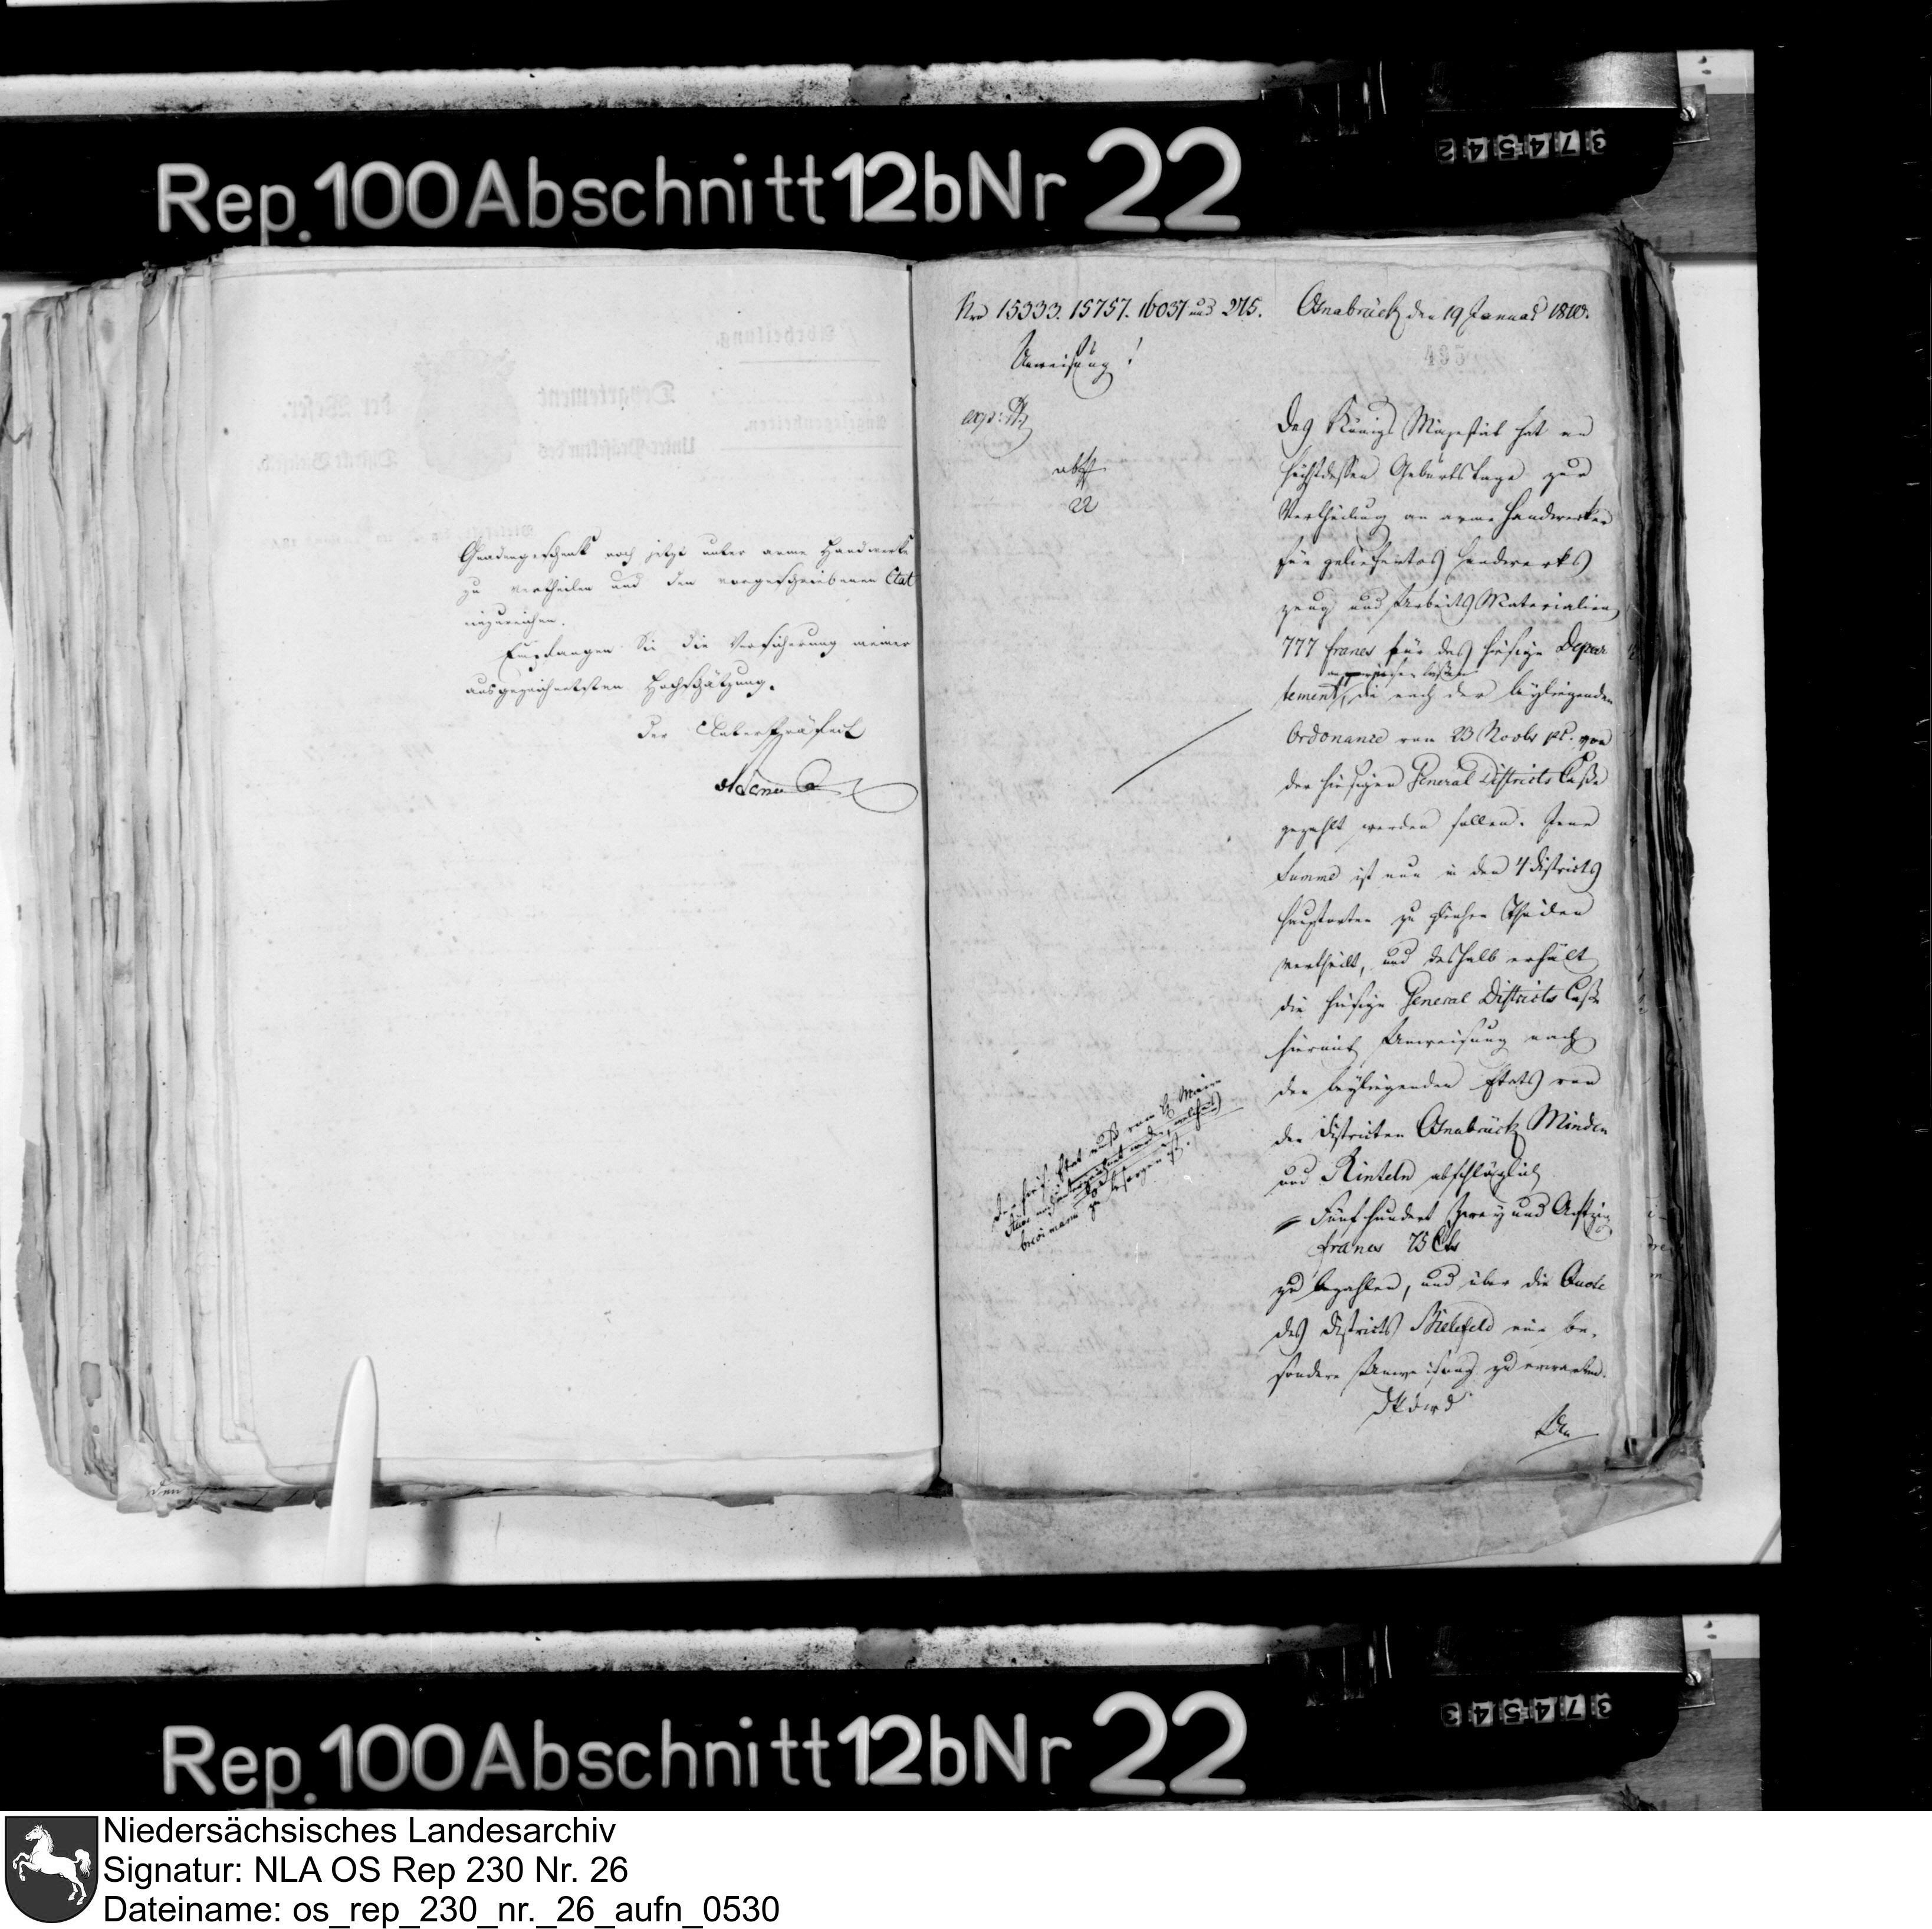 Rep. 100 Abschnitt 12b Nr 22
374542
Gnadengeschenk noch jetzt unter arme Handwerker
zu vertheilen und den vorgeschriebenen Etat
einzureichen.
Empfangen Sie die Versicherung meiner
ausgezeichnetsten Hochschätzung.
Der Unterpräfect
Nro 15333. 15757. 16037 und 275.
Osnabrück den 19 Januar 1810.
495
Anweisung!
22
Des Königs Majestät hat an
höchstdessen Geburtstage zur
Vertheilung an arme Handwerker
für geliefertes Handwerks
zeug und Arbeits Materialien
777 francs für das hiesige Depar
anweisen lassen
tement, die nach der beyliegenden
Ordonance vom 23 Novbr pt. von
der hiesigen General Districts Casse
gezahlt werden sollen. Jene
Summe ist nun in den 4 Districts
Hauptorten zu gleichen Theilen
vertheilt, und deshalb erhält
die hiesige General Districts Casse
hiermit Anweisung nach
den beyliegenden Etats von
den Districten Osnabrück Minden
und Rinteln abschläglich
Fünfhundert Zwey und Achtzig
francs 75 Cts
zu bezahlen, und über die Quote
des Districts Bielefeld eine be-
sondere Anweisung zu erwarten.
Etat muß vom H. Maire
unterzeichnet werden, welches
zu besorgen ist.
Rep. 100 Abschnitt 12b Nr 22
374543
Niedersächsisches Landesarchiv
Signatur: NLA OS Rep 230 Nr. 26
Dateiname: os_rep_230_nr._26_aufn_0530